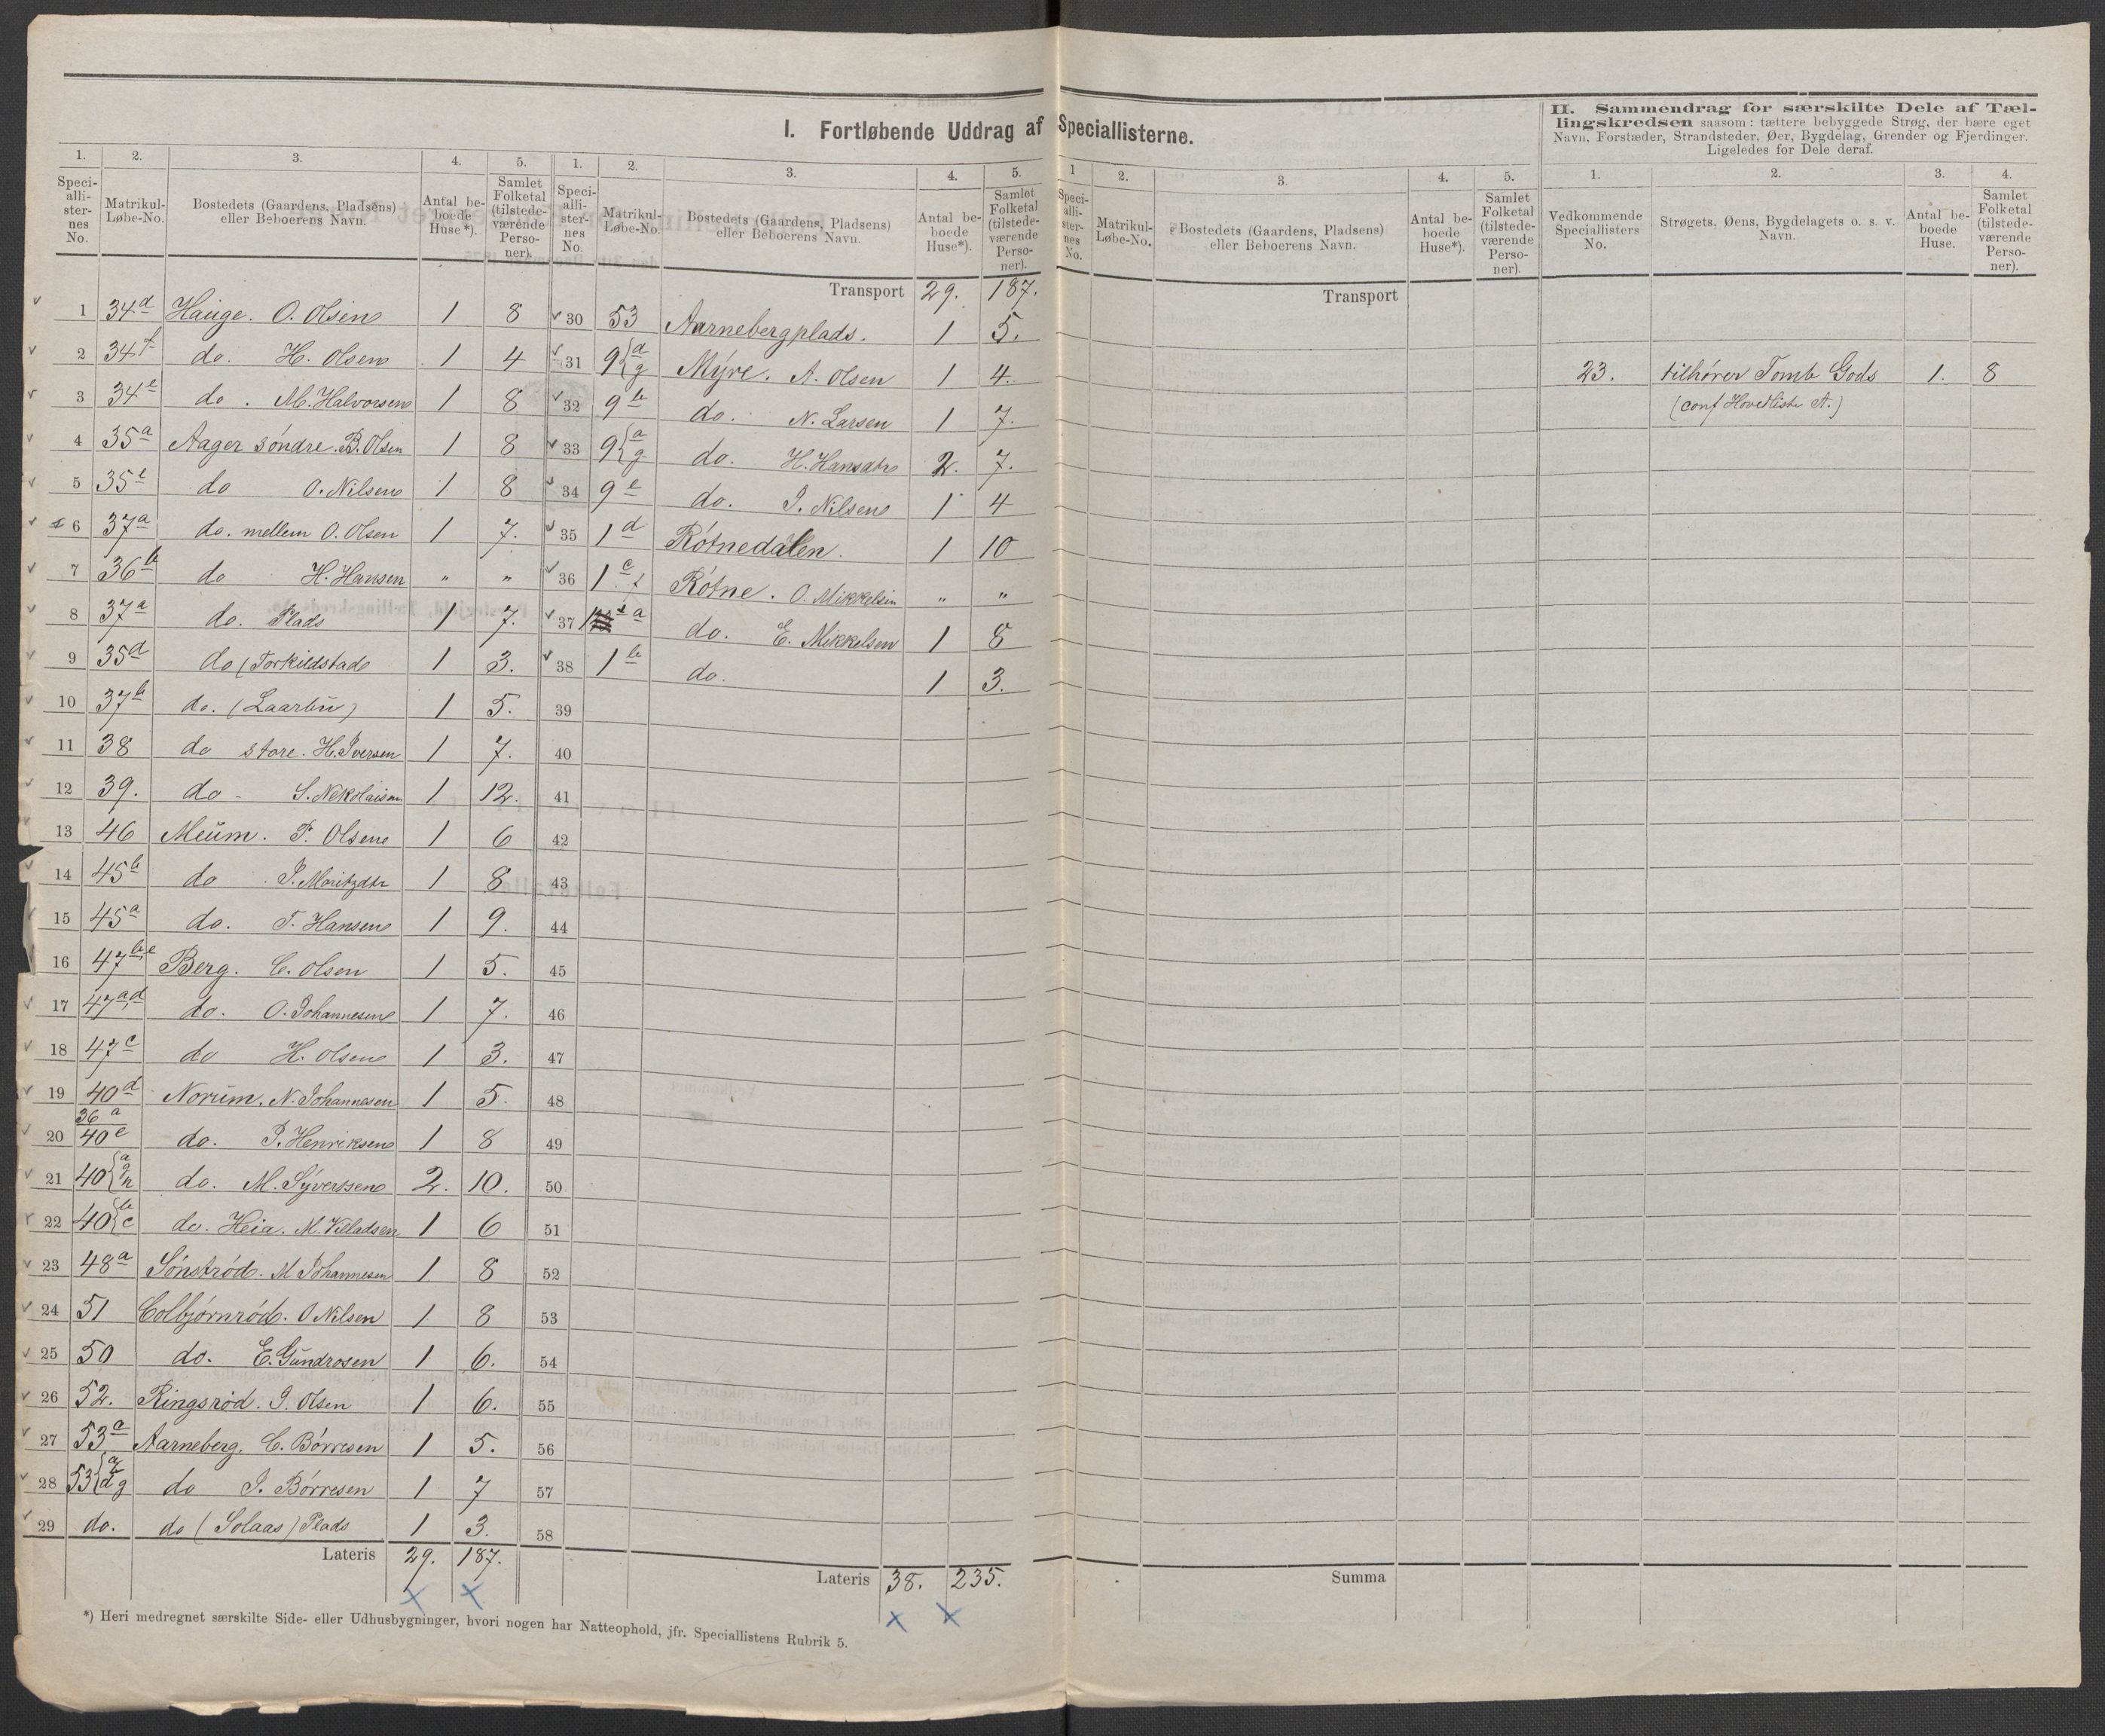 I. Fortløbende Uddrag af Speciallisterne.
II. Sammendrag for særskilte Dele af Tæl-
lingskredsen saasom: tættere bebyggede Strøg, der bære eget
Navn, Forstæder, Strandsteder, Øer, Bygdelag, Grender og Fjerdinger.
Ligeledes for Dele deraf.
1. 2. 3. 4. 5.
Speci-alli-ster-nes No. Matrikul-Løbe-No. Bostedets (Gaardens, Pladsens) eller Beboerens Navn. Antal be-boede Huse*). Samlet Folketal (tilstede-værende Perso-ner).
1 34d Hauge. O. Olsen 1 8
2 34f do. H. Olsen 1 4
3 34e do. M. Halvorsen 1 8
4 35a Aager søndre. B. Olsen 1 8
5 35e do O. Nilsen 1 8
6 37a do. mellem O. Olsen 1 7.
7 36b do H. Hansen " "
8 37a do. Plads 1 7.
9 35d do (Torkildstad 1 3.
10 37b do. (Laarbu) 1 5.
11 38 do store. H. Iversen 1 7.
12 39. do - S. Nekolaisen 1 12.
13 46 Meum. P. Olsen 1 6
14 45b do J. Moritzdtr 1 8
15 45a do. T. Hansen 1 9.
16 47b,e Berg. C. Olsen 1 5.
17 47a,d do. O. Johannesen 1 7.
18 47c do H. Olsen 1 3.
19 40d Norum. N. Johannesen 1 5.
20 36a 40e do. P. Henriksen 1 8
21 40 do. M. Syversen 2. 10.
22 40{b c do. Heia. M. Villadsen 1 6
23 48a Sønstrød. M Johannesen 1 8
24 51 Colbjørnrød. O Nilsen 1 8
25 50 do. E. Gundrosen 1 6.
26 52. Ringsrød. J. Olsen 1 6.
27 53a Aarneberg. C. Børresen 1 5.
28 53 do J. Børresen 1 7
29 do. do (Solaas) Plads 1 3.
Lateris 29. 187.
1. 2. 3. 4. 5.
Speci-alli-ster-nes No. Matrikul-Løbe-No. Bostedets (Gaardens, Pladsens) eller Beboerens Navn. Antal be-boede Huse*). Samlet Folketal (tilstede-værende Perso-ner).
Transport 29. 187.
30 53 Aarnebergplads. 1 5.
31 9{d g Myre. A. Olsen 1 4.
32 9b do. N. Larsen 1 7.
33 9{a g do. H. Hansdtr 2. 7.
34 9e do. J. Nilsen 1 4
35 1d Røtnedalen. 1 10
36 1c Røtne. O. Mikkelsen " "
37 a do. E. Mikkelsen 1 8
38 1b do. 1 3.
39
40
41
42
43
44
45
46
47
48
49
50
51
52
53
54
55
56
57
58
Lateris 38. 235.
*) Heri medregnet særskilte Side- eller Udhusbygninger, hvori nogen har Natteophold, jfr. Speciallistens Rubrik 5.
1 2. 3. 4. 5.
Speci-alli-ster-nes No. Matrikul-Løbe-No. Bostedets (Gaardens, Pladsens) eller Beboerens Navn. Antal be-boede Huse*). Samlet Folketal (tilstede-værende Perso-ner).
Transport
Summa
1. 2. 3. 4.
Vedkommende Speciallisters No. Strøgets, Øens, Bygdelagets o. s. v. Navn. Antal be-boede Huse. Samlet Folketal (tilstede-værende Perso-ner).
23. tilhører Tomb Gods 1. 8
(conf Hovedliste A.)